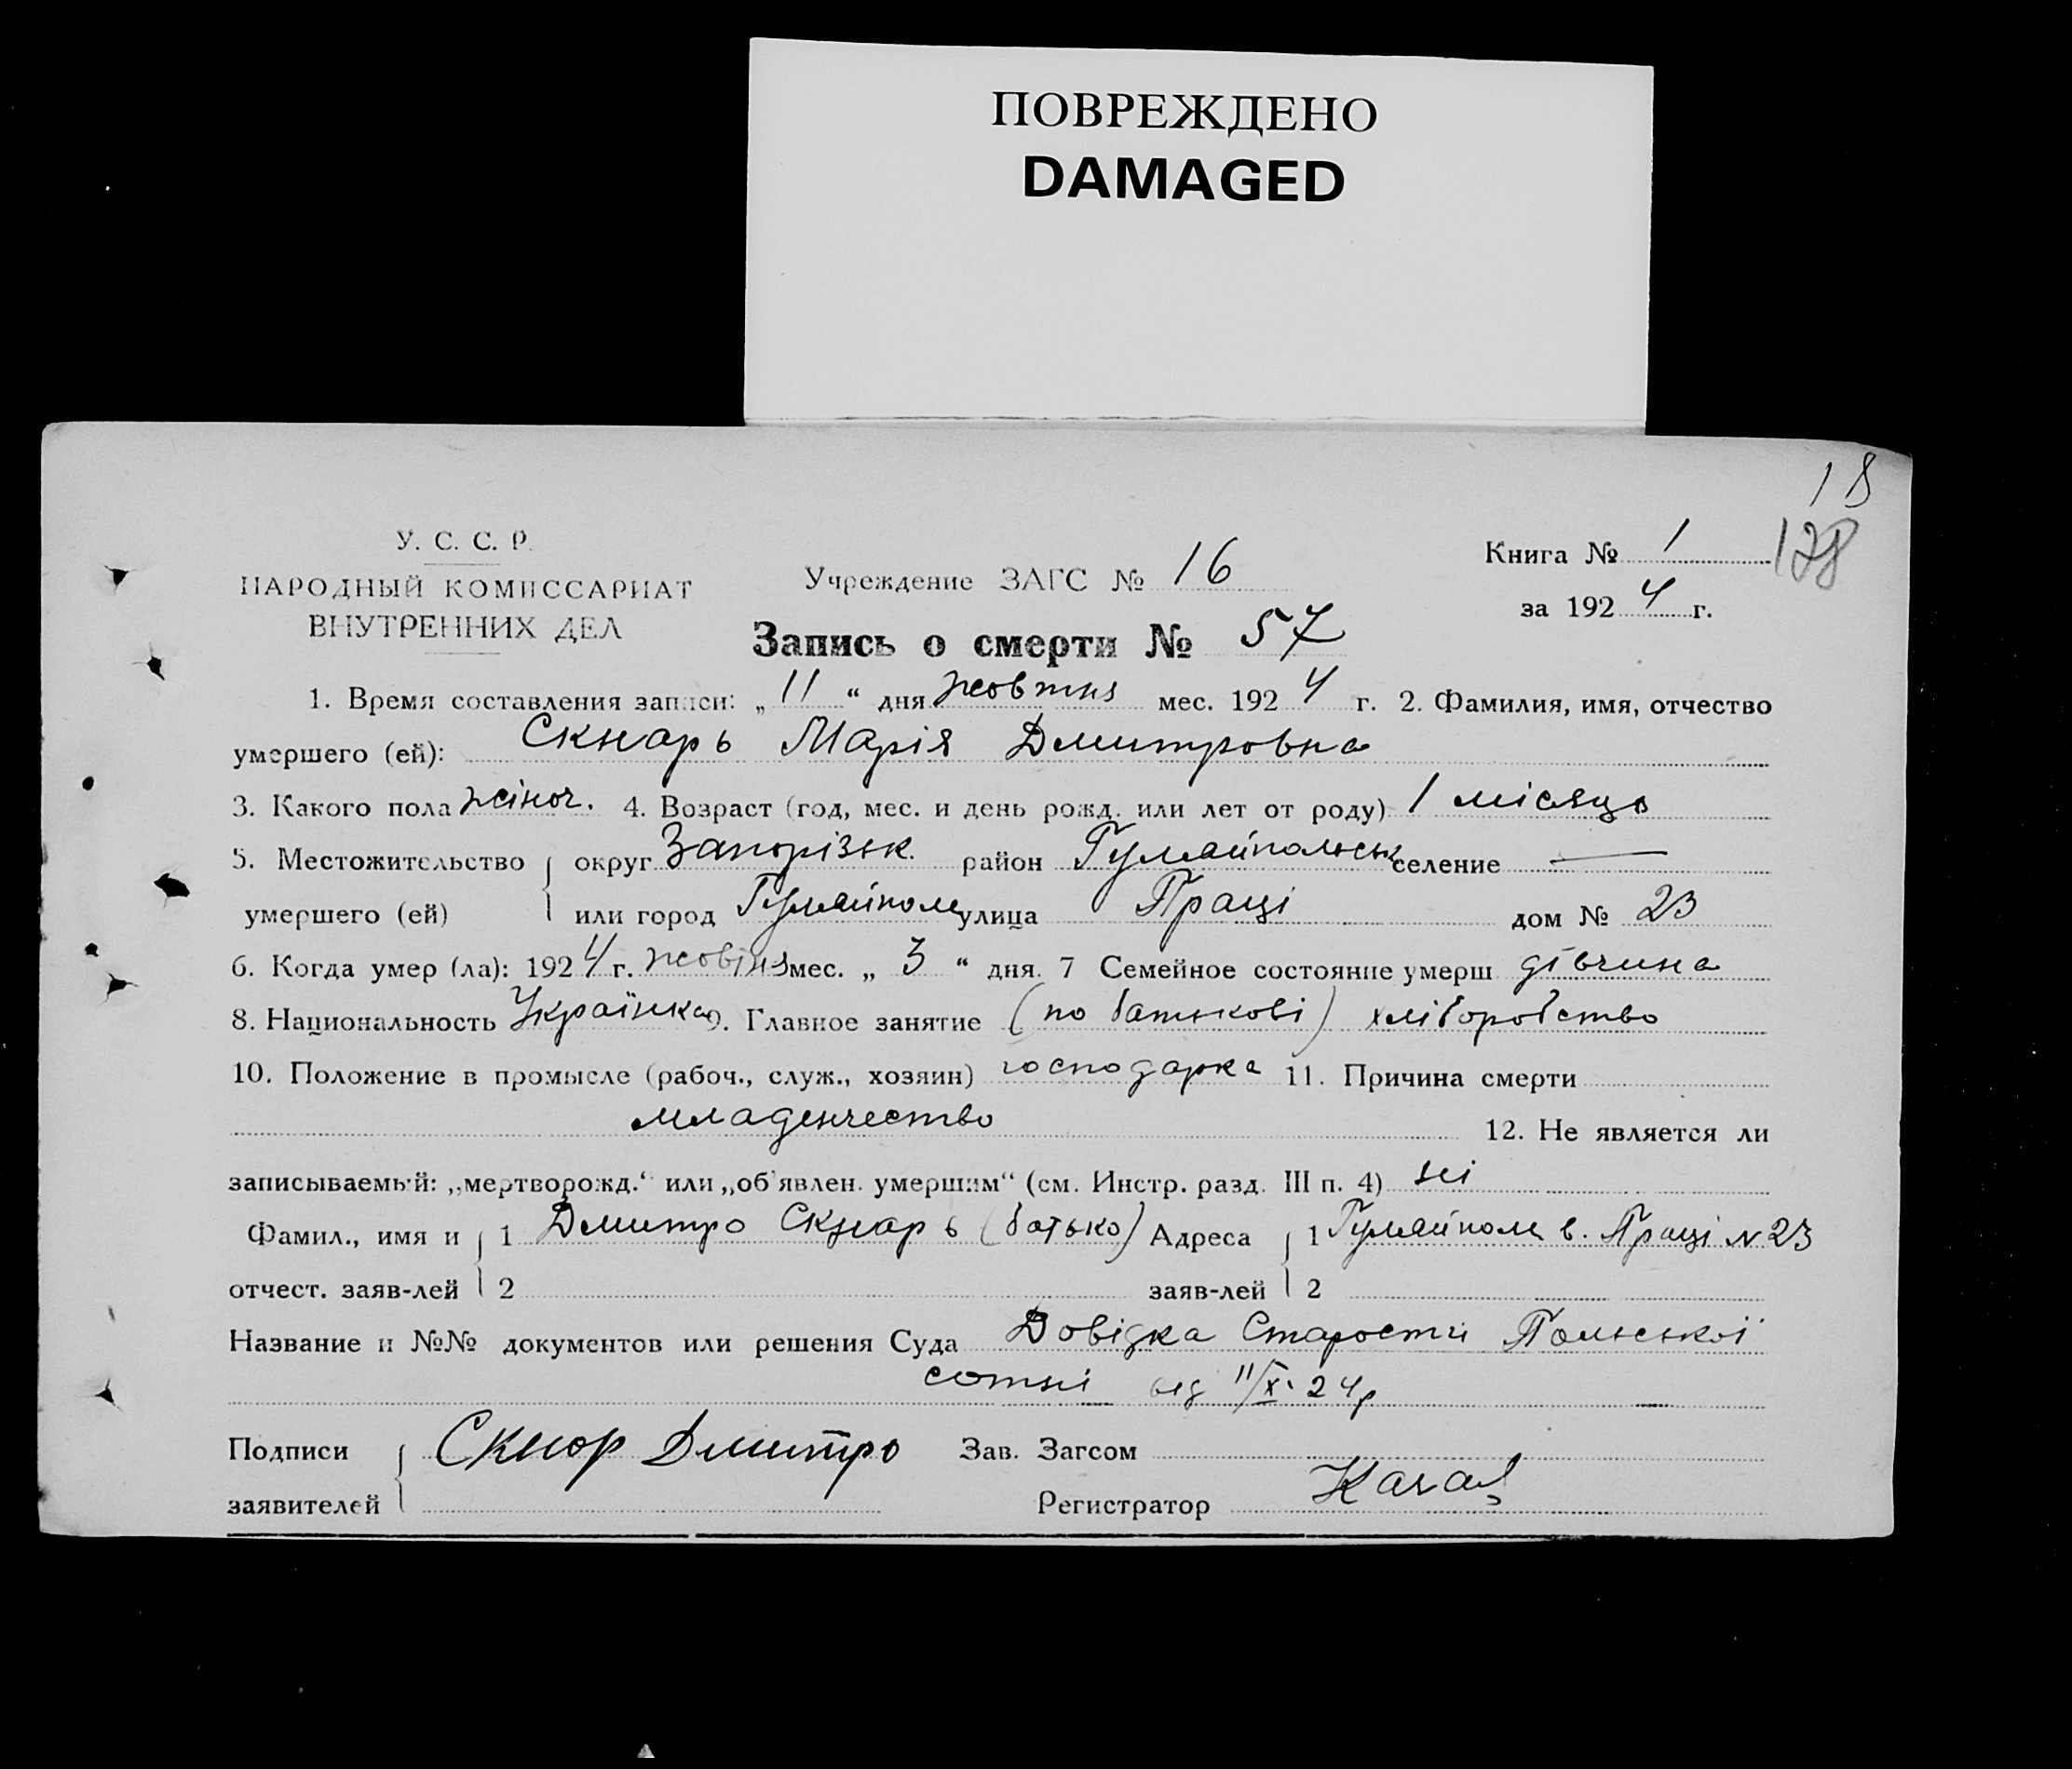 ПОВРЕЖДЕНО
DAMAGED
18
128
У. С. С. Р.
НАРОДНЫЙ КОМИССАРИАТ
ВНУТРЕННИХ ДЕЛ
Учреждение ЗАГС № 16
Книга № 1
за 1924 г.
Запись о смерти № 57
1. Время составления записи: „11“ дня жовтня мес. 1924 г. 2. Фамилия, имя, отчество
умершего (ей): Скнарь Марія Дмитровна
3. Какого пола жіноч. 4. Возраст (год, мес. и день рожд. или лет от роду) 1 місяць
5. Местожительство округ Запорізьк. район Гуляйпольськ селение —
умершего (ей) или город Гуляйполе улица Праці дом № 23
6. Когда умер (ла): 1924 г. жовтня мес. „3“ дня. 7 Семейное состояние умерш дівчина
8. Национальность Українка 9. Главное занятие (по батькові) хліборобство
10. Положение в промысле (рабоч., служ., хозяин) господарка 11. Причина смерти
младенчество 12. Не является ли
записываемый: „мертворожд.“ или „об'явлен. умершим“ (см. Инстр. разд. III п. 4) ні
Фамил., имя и 1 Дмитро Скнарь (батько) Адреса 1 Гуляйполе в. Праці № 23
отчест. заяв-лей 2 заяв-лей 2
Название и №№ документов или решения Суда Довідка Старости Польської
сотні від 11/X. 24 р
Подписи Скнар Дмитро Зав. Загсом
заявителей Регистратор